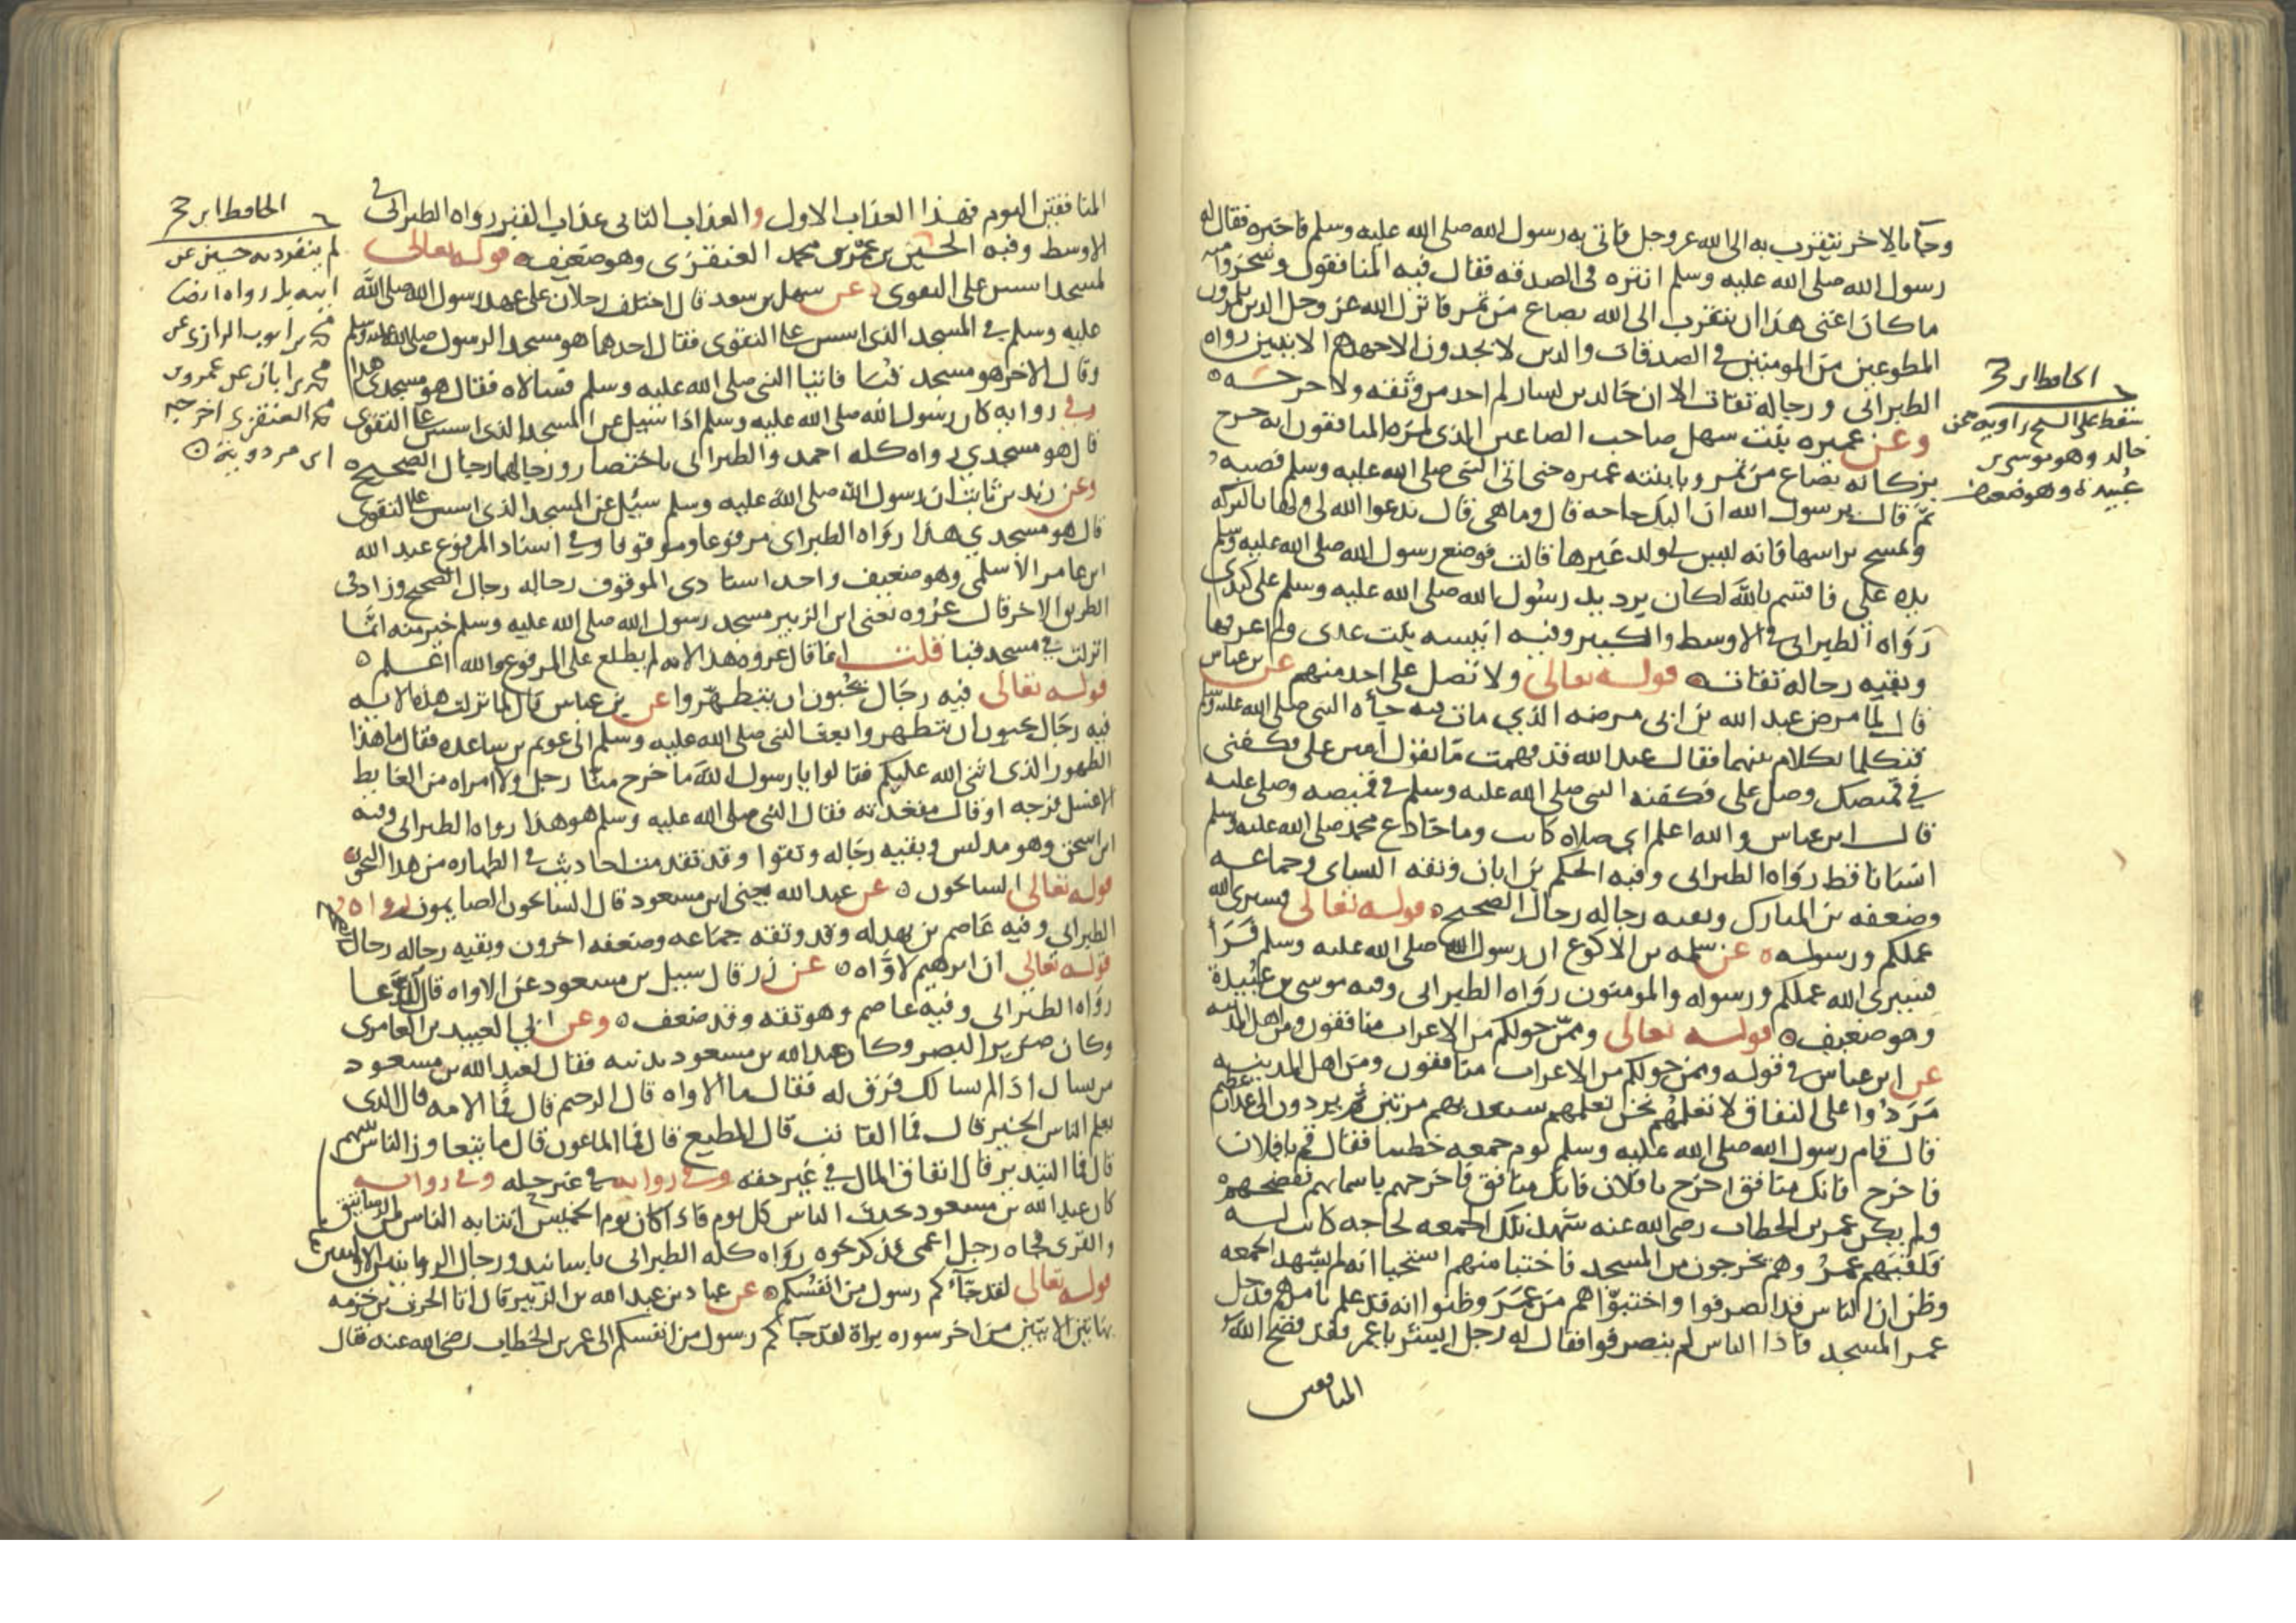 وجا بالاخر يتقرب به الى الله عز وجل فاتى به رسول الله صلى الله عليه وسلم فاخبره فقال له
رسول الله صلى الله عليه وسلم انثره في الصدقه فقال فيه المنافقون وسخروا منه
ما كان اغنى هذا ان يتقرب الى الله بصاع من تمر فانزل الله عز وجل الذين يلمزون
المطوعين من المومنين في الصدقات والذين لا يجدون الا جهدهم الايتين رواه
الطبراني ورجاله ثقات الا ان خالد بن يسار لم اجد من وثقه ولا جرحه
وعن عميره بنت سهل صاحب الصاعين الذي لمزه المنافقون انه خرج
بزكاته بصاع من تمر وبابنته عميره حتى اتى النبي صلى الله عليه وسلم فصبه
ثم قال يرسول الله ان لي اليك حاجه قال وما هي قال تدعوا الله لي ولها بالبركه
وتمسح براسها فانه ليس لي ولد غيرها قالت فوضع رسول الله صلى الله عليه وسلم
يده علي فاقسم بالله لكان برد يد رسول الله صلى الله عليه وسلم على كبدي
رواه الطبراني في الاوسط والكبير وفيه انيسه بنت عدي ولم اعرفها
وبقيه رجاله ثقات قوله تعالى ولا تصل على احد منهم عن بن عباس
قال لما مرض عبد الله بن ابي مرضه الذي مات فيه جاه النبي صلى الله عليه وسلم
فتكلما بكلام بينهما فقال عبد الله قد فهمت ما تقول امنن علي فكفني
في قميصك وصل علي فكفنه النبي صلى الله عليه وسلم في قميصه وصلى عليه
قال ابن عباس والله اعلم اي صلاه كانت وما خادع محمد صلى الله عليه وسلم
انسانا قط رواه الطبراني وفيه الحكم بن ابان وثقه النساي وجماعه
وضعفه بن المبارك وبقيه رجاله رجال الصحيح قوله تعالى فسيرى الله
عملكم ورسوله عن سلمه بن الاكوع ان رسول الله صلى الله عليه وسلم قرا
فسيرى الله عملكم ورسوله والمومنون رواه الطبراني وفيه موسى بن عبيدة
وهو ضعيف قوله تعالى وممن حولكم من الاعراب منافقون ومن اهل المدينه
عن ابن عباس في قوله وممن حولكم من الاعراب منافقون ومن اهل المدينه
مردوا على النفاق لا تعلمهم نحن نعلمهم سنعذبهم مرتين ثم يردون الى عذاب عظيم
قال قام رسول الله صلى الله عليه وسلم يوم جمعه خطيبا فقال قم يا فلان
فاخرج فانك منافق اخرج يا فلان فانك منافق فاخرجهم باسمايهم ففضحهم
ولم يكن عمر بن الخطاب رضي الله عنه شهد تلك الجمعه لحاجه كانت له
فلقيهم عمر وهم يخرجون من المسجد فاختبا منهم استحيا انه لم يشهد الجمعه
وظن ان الناس قد انصرفوا واختبوا هم من عمر وظنوا انه قد علم بامرهم فدخل
عمر المسجد فاذا الناس لم ينصرفوا فقال له رجل ابشر يا عمر فقد فضح الله
المنافقين
الحافظ ابن حجر
سقط على الشيخ راويه عن
خالد وهو موسى بن
عبيدة وهو ضعيف
المنافقين اليوم فهذا العذاب الاول والعذاب الثاني عذاب القبر رواه الطبراني في
الاوسط وفيه الحسين بن عمرو بن محمد العنقزى وهو ضعيف قوله تعالى
لمسجد اسس على التقوى عن سهل بن سعد قال اختلف رجلان على عهد رسول الله صلى الله
عليه وسلم في المسجد الذي اسس على التقوى فقال احدهما هو مسجد الرسول صلى الله عليه وسلم
وقال الاخر هو مسجد قبا فاتيا النبي صلى الله عليه وسلم فسالاه فقال هو مسجدي هذا
وفي روايه كان رسول الله صلى الله عليه وسلم اذا سيل عن المسجد الذي اسس على التقوى
قال هو مسجدي رواه كله احمد والطبراني باختصار ورجالهما رجال الصحيح
وعن زيد بن ثابت ان رسول الله صلى الله عليه وسلم سئل عن المسجد الذي اسس على التقوى
قال هو مسجدي هذا رواه الطبراني مرفوعا وموقوفا وفي اسناد المرفوع عبد الله
ابن عامر الاسلمي وهو ضعيف واحد اسنادي الموقوف رجاله رجال الصحيح وزاد في
الطريق الاخر قال عروه يعني ابن الزبير مسجد رسول الله صلى الله عليه وسلم خير منه انما
انزلت في مسجد قبا قلت انما قال عروه هذا لانه لم يطلع على المرفوع والله اعلم
قوله تعالى فيه رجال يحبون ان يتطهروا عن بن عباس قال لما نزلت هذه الايه
فيه رجال يحبون ان يتطهروا بعث النبي صلى الله عليه وسلم الى عويم بن ساعده فقال ما هذا
الطهور الذي اثنى الله عليكم فقالوا يا رسول الله ما خرج منا رجل ولا امراه من الغايط
الا غسل فرجه او قال مقعدته فقال النبي صلى الله عليه وسلم هو هذا رواه الطبراني وفيه
ابن اسحق وهو مدلس وبقيه رجاله وثقوا وقد تقدمت احاديث في الطهاره من هذا النحو
قوله تعالى السايحون عن عبد الله يعني ابن مسعود قال السايحون الصايمون رواه
الطبراني وفيه عاصم بن بهدله وقد وثقه جماعه وضعفه اخرون وبقيه رجاله رجال الصحيح
قوله تعالى ان ابرهيم لاواه عن زر قال سيل بن مسعود عن الاواه قال الدعا
رواه الطبراني وفيه عاصم وهو ثقه وقد ضعف وعن ابي العبيدين العامري
وكان ضرير البصر وكان عبد الله بن مسعود يدنيه فقال لعبد الله بن مسعود
من نسال اذا لم نسالك فرق له فقال ما الاواه قال الرحيم قال فما الامه قال الذي
يعلم الناس الخير قال فما القانت قال المطيع قال فما الماعون قال ما يتعاون الناس بينهم
قال فما التبذير قال انفاق المال في غير حقه وفي روايه في غير حله وفي روايه
كان عبد الله بن مسعود يحدث الناس كل يوم فاذا كان يوم الخميس انتابه الناس من الرساتيق
والقرى فجاه رجل اعمى فذكر نحوه رواه كله الطبراني باسانيد ورجال الروايتين الاوليين
قوله تعالى لقد جآءكم رسول من انفسكم عن عباد بن عبد الله بن الزبير قال اتى الحرث بن خزمه
بهاتين الايتين من اخر سوره براة لقد جآكم رسول من انفسكم الى عمر بن الخطاب رضي الله عنه فقال
الحافظ ابن حجر
لم ينفرد به حسين عن
ابيه بل رواه ايضا
بن ايوب الرازي عن
بن ابان عن عمرو بن
العنقزي اخرجه
ابن مردويه